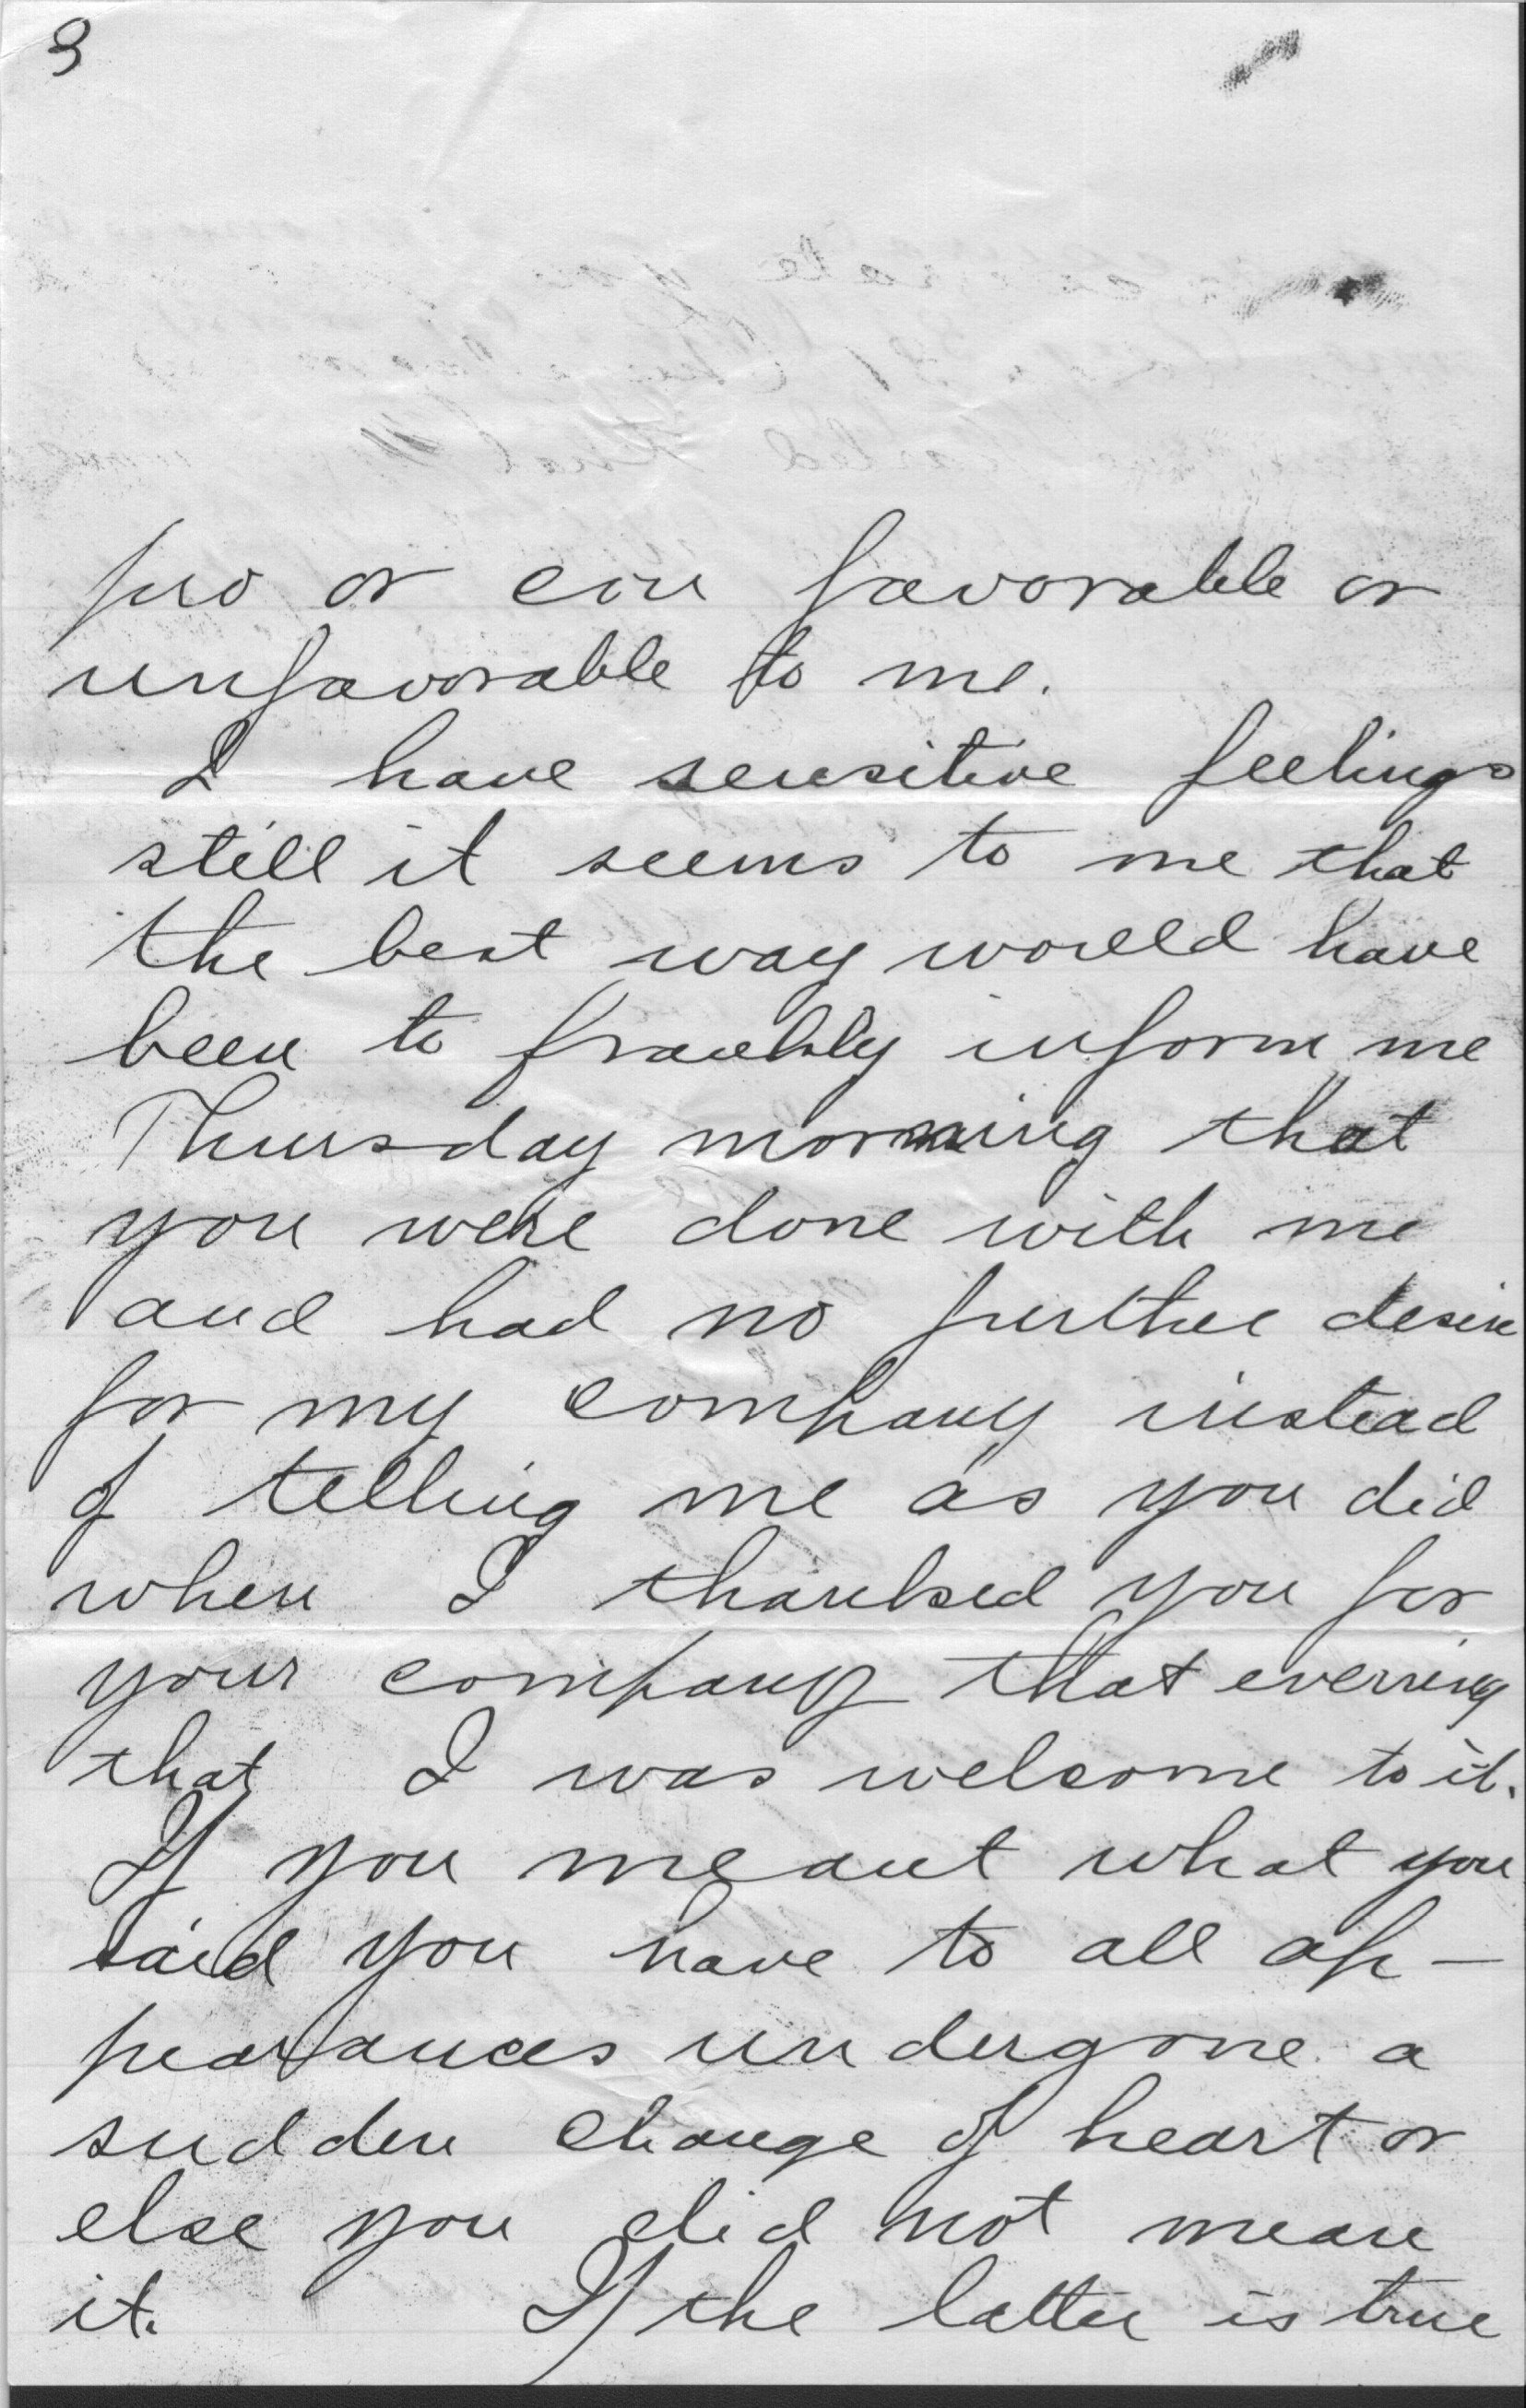 3
pro or con favorable or
unfavorable to me.
I have sensitive feelings
still it seems to me that
the best way would have
been to frankly inform me
Thursday morning that
you were done with me
and had no further desire
for my company instead
of telling me as you did
when I thanked you for
your company that evening
that I was welcome to it.
If you meant what you
said you have to all ap-
pearances undergone a
sudden change of heart or
else you did not mean
it. If the latter is true